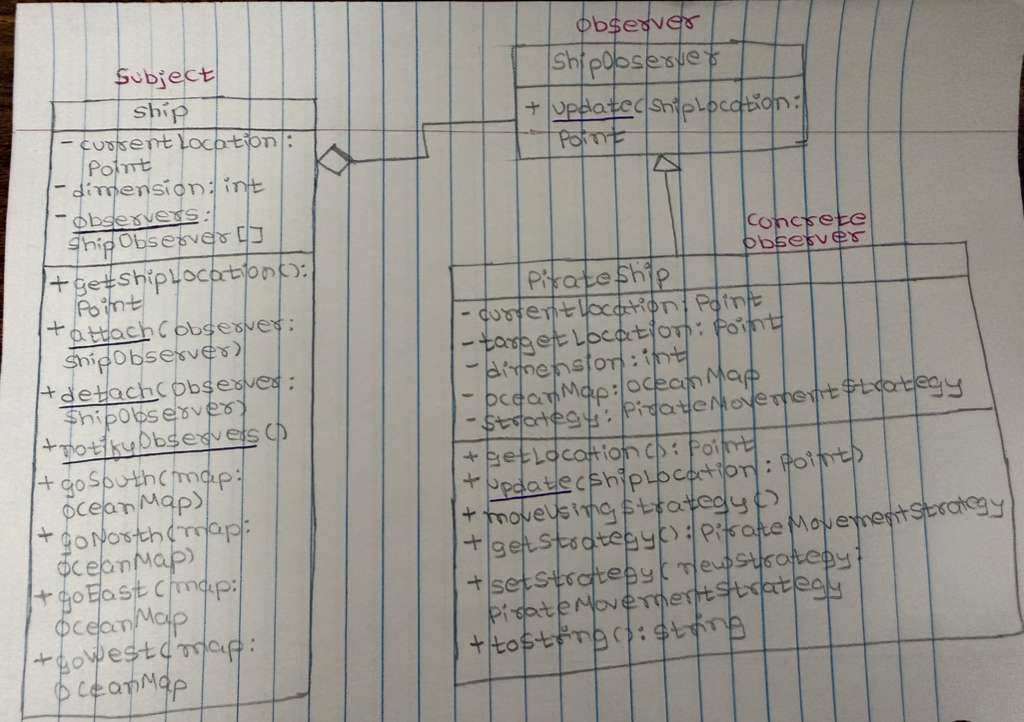 Subject
Ship
- currentLocation:
Point
- dimension: int
- observers:
ShipObserver[]
+ getShipLocation():
Point
+ attach(observer:
ShipObserver)
+ detach(observer:
ShipObserver)
+ notifyObservers()
+ goSouth(map:
OceanMap)
+ goNorth(map:
OceanMap)
+ goEast(map:
OceanMap
+ goWest(map:
OceanMap
Observer
ShipObserver
+ update(shipLocation:
Point
Concrete
Observer
PirateShip
- currentLocation: Point
- targetLocation: Point
- dimension: int
- oceanMap: OceanMap
- strategy: PirateMovementStrategy
+ getLocation(): Point
+ update(shipLocation: Point)
+ moveUsingStrategy()
+ getStrategy(): PirateMovementStrategy
+ setStrategy(newStrategy:
PirateMovementStrategy
+ toString(): String